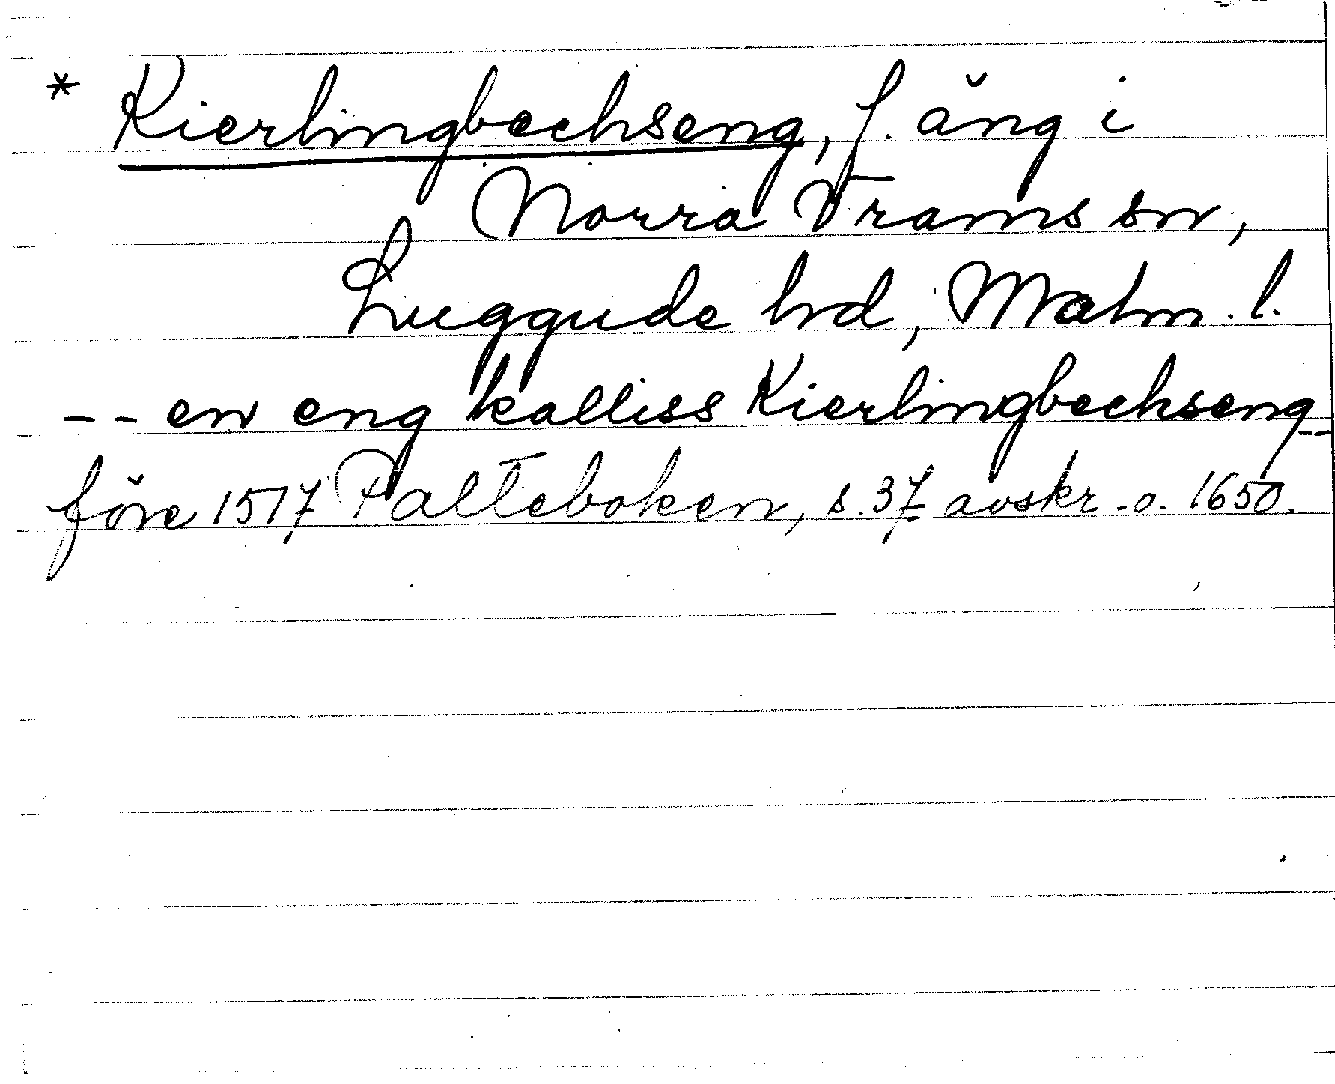 * Kierlingbechseng, f. äng i
Norra Vrams sn,
Luggude hd, Malm. l.
-- en eng kalliss Kierlingbechseng --
före 1517 Palteboken, s. 37 avskr. o. 1650.